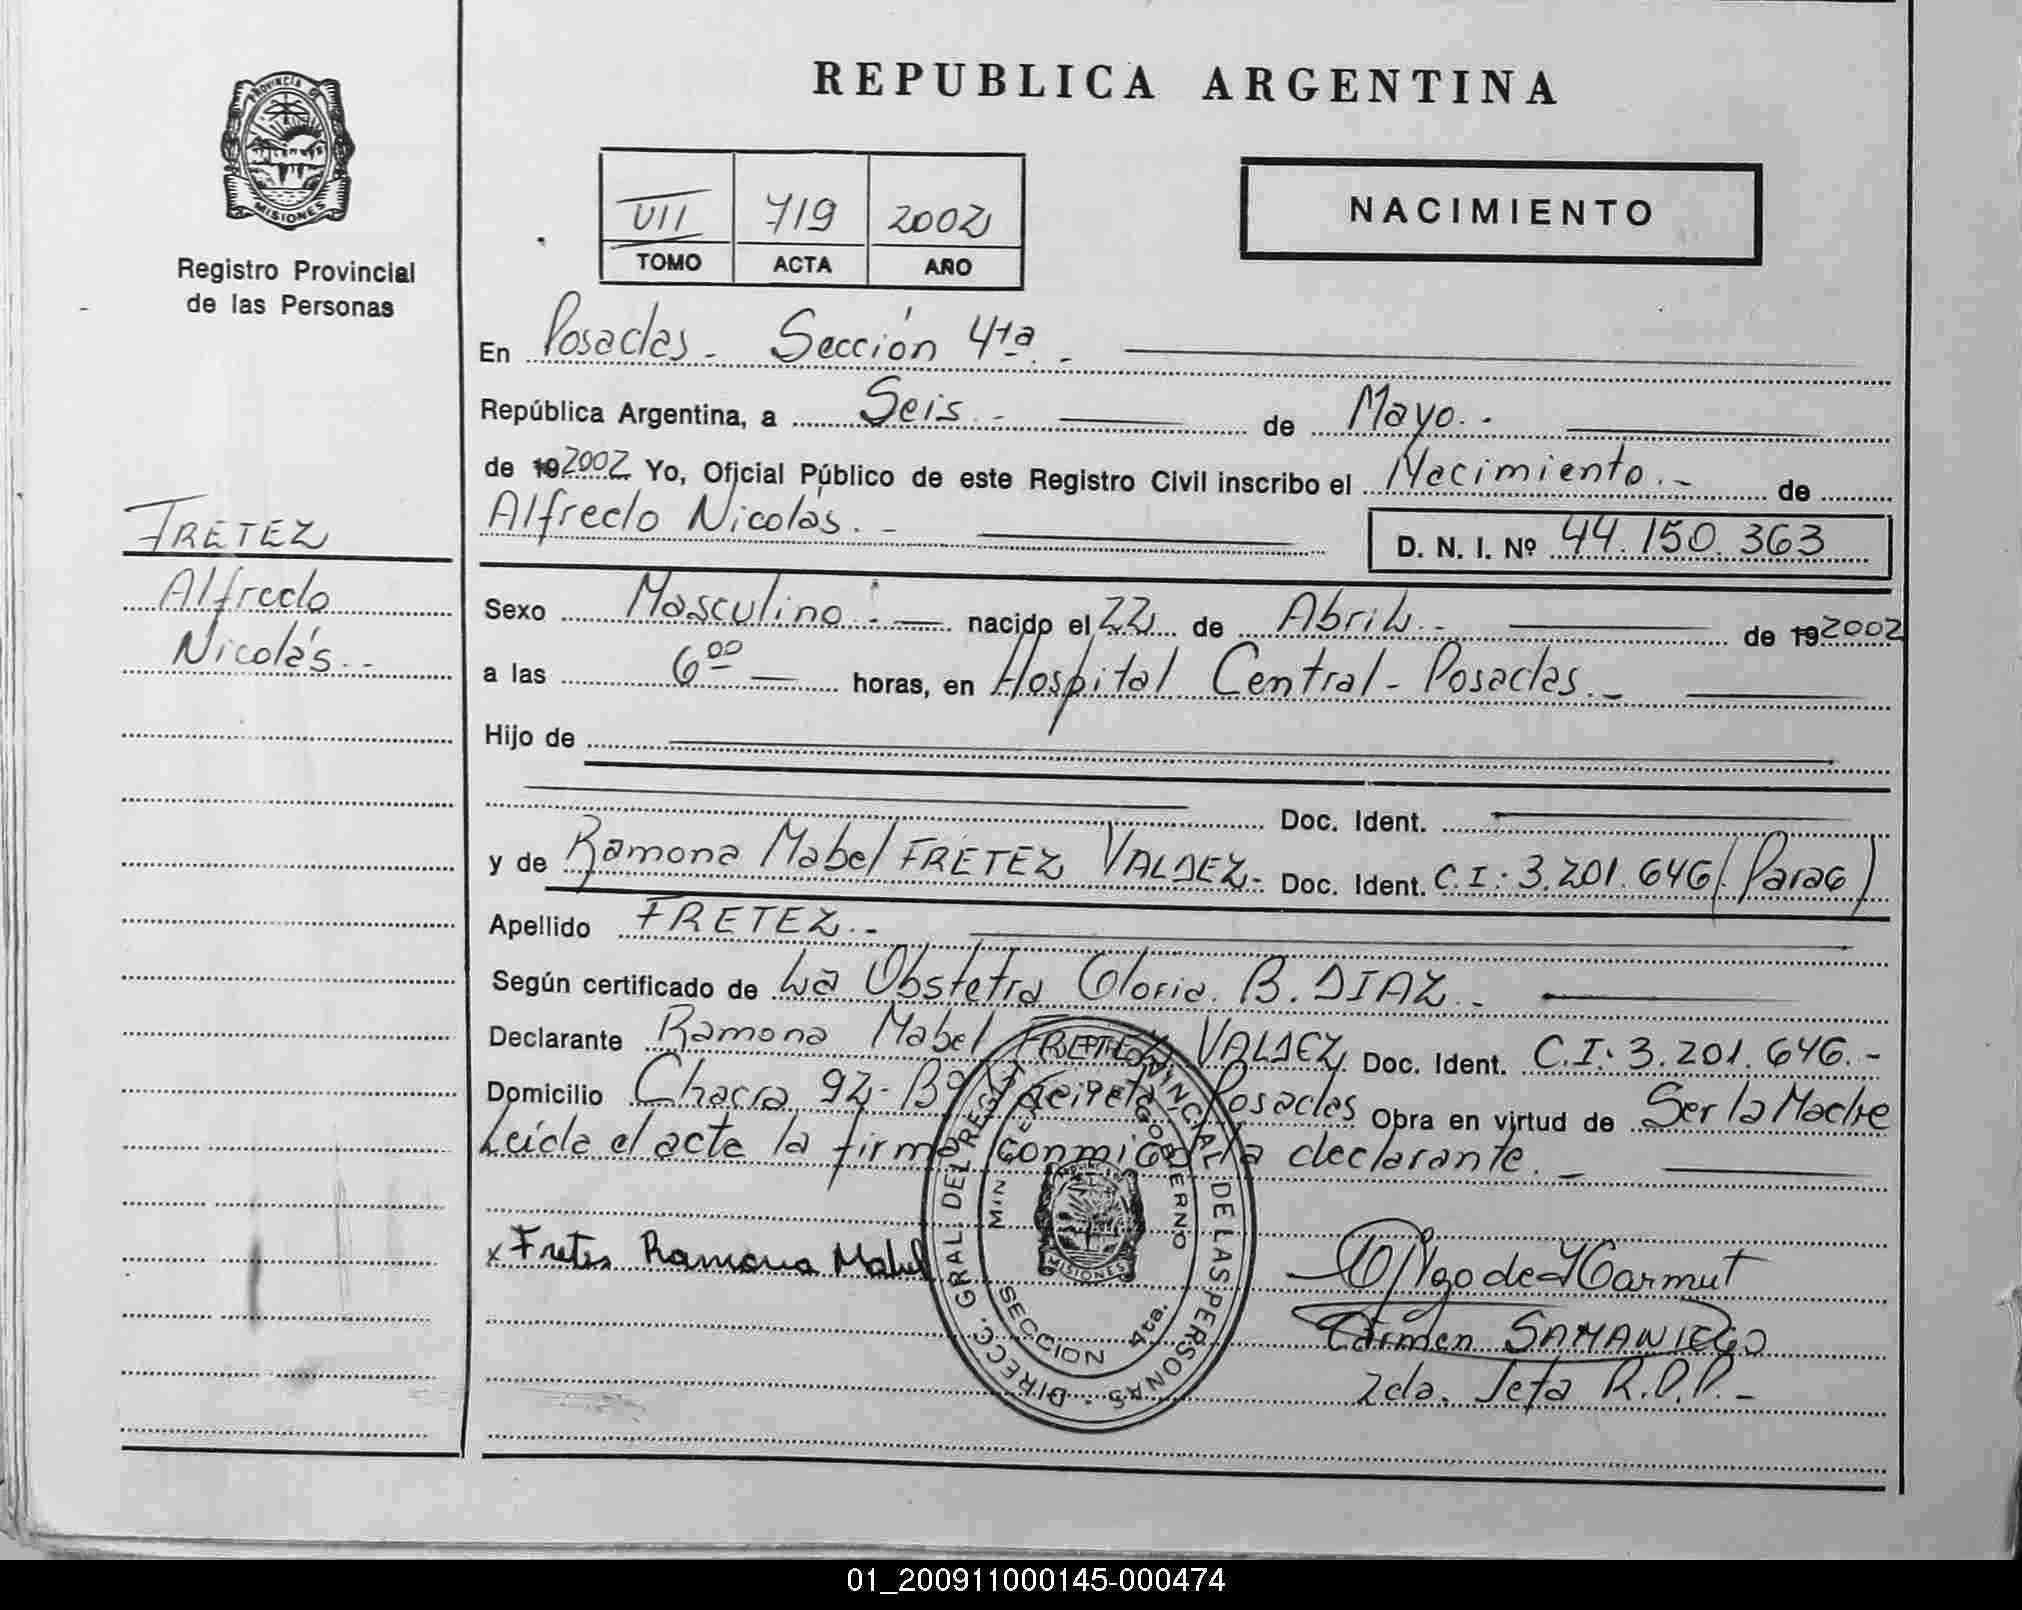 REPUBLICA ARGENTINA
PROVINCIA DE
MISIONES
Registro Provincial
de las Personas
VII 719 2002
TOMO ACTA AÑO
NACIMIENTO
En Posadas - Sección 4ta. -
República Argentina, a Seis. - de Mayo. -
de 192002 Yo, Oficial Público de este Registro Civil inscribo el Nacimiento. - de
Alfredo Nicolás. - D. N. I. Nº 44.150.363
FRETEZ
Alfredo
Nicolás. -
Sexo Masculino. - nacido el 22 de Abril. - de 192002
a las 6 00 horas, en Hospital Central - Posadas. -
Hijo de
Doc. Ident.
y de Ramona Mabel FRETEZ VALDEZ - Doc. Ident. C.I: 3.201.646 (Parag)
Apellido FRETEZ. -
Según certificado de La Obstetra Gloria B. DIAZ. -
Declarante Ramona Mabel FRETEZ VALDEZ. Doc. Ident. C.I: 3.201.646. -
Domicilio Chacra 92 - Bº Posadas Obra en virtud de Ser la Madre
Leída el acta la firma conmigo la declarante. -
x Fretes Ramona Mabel
DIRECC. GRAL. DEL REG. PROVINCIAL DE LAS PERSONAS
GOBIERNO
MISIONES
SECCION 4ta.
Carmen SAMANIEGO
2da. Jefa R.P.P. -
01_200911000145-000474